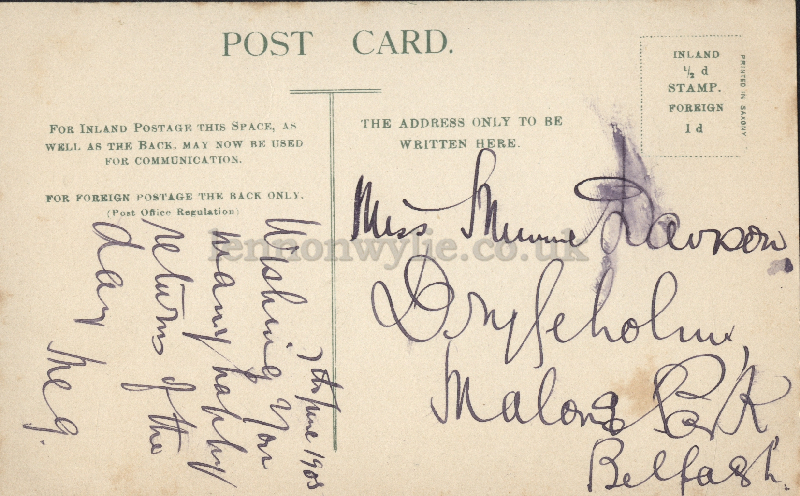 POST CARD.
INLAND
½ d
STAMP.
FOREIGN
1 d
PRINTED IN SAXONY
FOR INLAND POSTAGE THIS SPACE, AS
WELL AS THE BACK, MAY NOW BE USED
FOR COMMUNICATION.
FOR FOREIGN POSTAGE THE BACK ONLY.
(Post Office Regulation)
THE ADDRESS ONLY TO BE
WRITTEN HERE.
7th June 1905
Wishing you
many happy
returns of the
day Meg.
Miss Minnie Davison
Malone Park
Belfast.
lennonwylie.co.uk